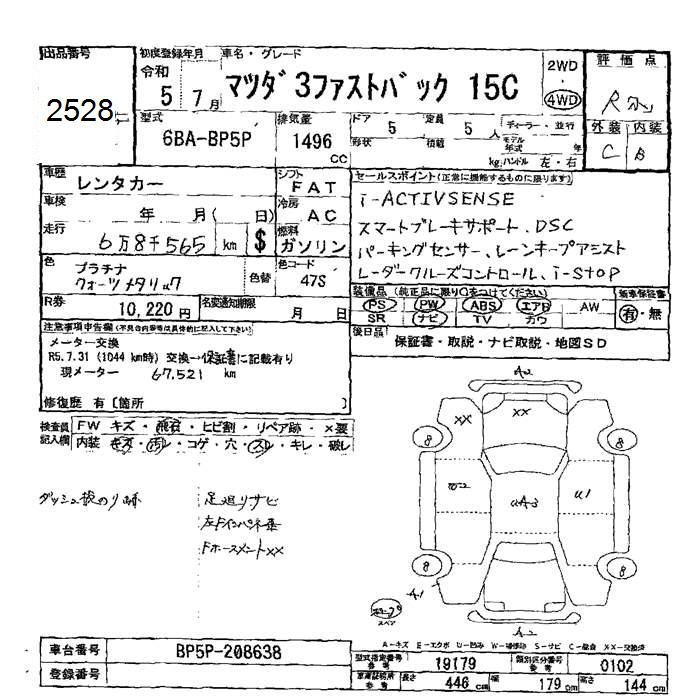 出品番号
2528
初度登録年月
令和
5 7月
車名・グレード
マツダ 3ファストバック 15C
2WD
・
4WD
評価点
外装 内装
C B
型式
6BA-BP5P
排気量
1496
CC
ドア 5
定員 5 人
形状
積載 kg
ディーラー・並行
モデル年式 年
ハンドル 左・右
車歴
レンタカー
シフト
FAT
車検
年 月( 日)
冷房
AC
走行
6万8千565 km $
燃料
ガソリン
色
プラチナ
クォーツメタリック
色替
色コード
47S
R券
10,220 円
名変通知期限
月 日
セールスポイント(正常に機能するものに限ります)
i-ACTIVSENSE
スマートブレーキサポート、DSC
パーキングセンサー、レーンキープアシスト
レーダークルーズコントロール、i-STOP
装備品(純正品に限り○をつけてください)
PS PW ABS エアB AW
SR ナビ TV カワ
新車保証書
有・無
後日品
保証書・取説・ナビ取説・地図SD
注意事項申告欄(不具合内容等は具体的に記入して下さい)
メーター交換
R5.7.31 (1044 km時) 交換→保証書に記載有り
現メーター 67,521 km
修復歴 有 [箇所 ]
検査員記入欄
FW キズ・飛石・ヒビ割・リペア跡・×要
内装 キズ・汚レ・コゲ・穴・スレ・キレ・破レ
足廻りサビ
A2
XX
XX
8
8
W2
UA3
U1
8
8
A1
A2
スペア
A-キズ E-エクボ U-凹み W-補修跡 S-サビ C-腐食 XX-交換済
車台番号
BP5P-208638
登録番号
型式指定番号
参考
19179
類別区分番号
参考
0102
車庫証明所
参考
長さ 446 cm
幅 179 cm
高さ 144 cm